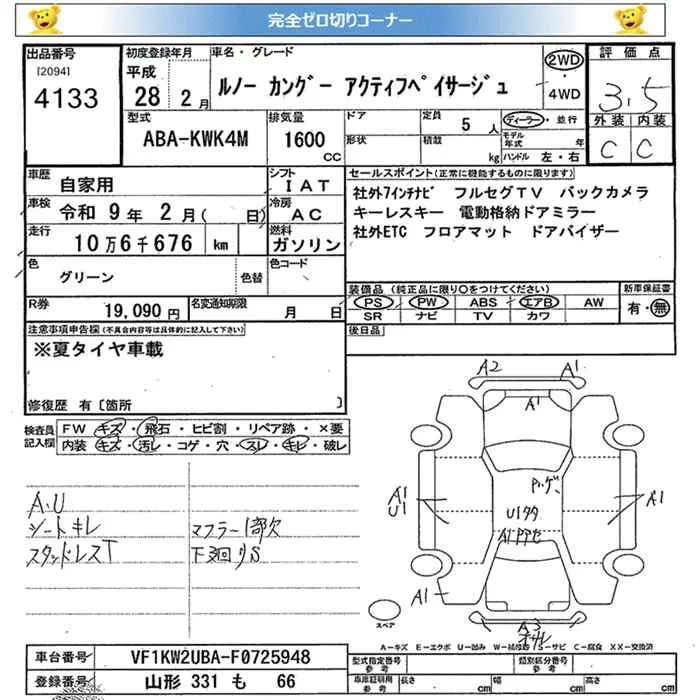 完全ゼロ切りコーナー
出品番号
[2094]
4133
初度登録年月
平成
28 2月
車名・グレード
ルノー カングー アクティフペイサージュ
2WD
・
4WD
評価点
3.5
外装 内装
C C
型式
ABA-KWK4M
排気量
1600
CC
ドア
形状
定員
5 人
積載
kg
ディーラー・並行
モデル年式 年
ハンドル 左・右
車歴
自家用
シフト
IAT
車検
令和 9年 2月( 日)
冷房
AC
走行
10万6千676 km
燃料
ガソリン
セールスポイント(正常に機能するものに限ります)
社外7インチナビ フルセグTV バックカメラ
キーレスキー 電動格納ドアミラー
社外ETC フロアマット ドアバイザー
色
グリーン
色替
色コード
装備品(純正品に限り○をつけてください)
PS PW ABS エアB AW
SR ナビ TV カワ
新車保証書
有・無
R券
19,090円
名変通知期限
月 日
後日品
注意事項申告欄(不具合内容等は具体的に記入して下さい)
※夏タイヤ車載
修復歴 有〔箇所 〕
検査員記入欄
FW キズ・飛石・ヒビ割・リペア跡・×要
内装 キズ・汚レ・コゲ・穴・スレ・キレ・破レ
A.U
シートキレ
スタッドレスT
マフラー1部欠
下廻りS
A2
A1
A1
A1
U1
A1
U1タタ
A1
A1
A3
スペア
A-キズ E-エクボ U-凹み W-補修跡 S-サビ C-腐食 XX-交換済
車台番号
VF1KW2UBA-F0725948
登録番号
山形 331 も 66
型式指定番号
参考
類別区分番号
参考
車庫証明用
参考
長さ cm
幅 cm
高さ cm